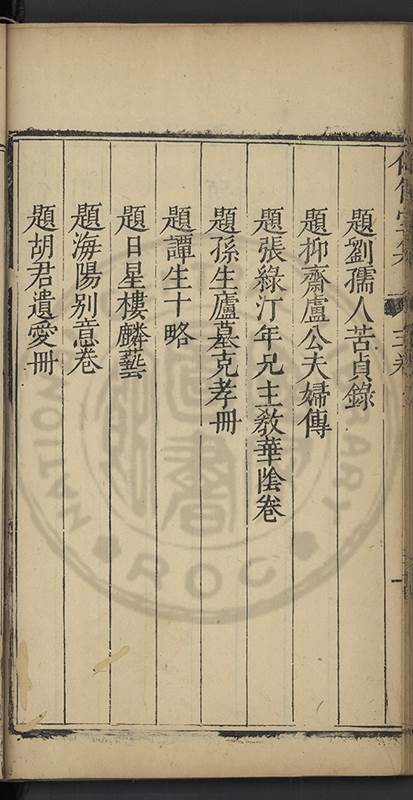 題劉孺人苦貞錄
題抑齋盧公夫婦傳
題張綠汀年兄主教華陰卷
題孫生廬墓克孝冊
題譚生十略
題日星樓麟藝
題海陽別意卷
題胡君遺愛冊